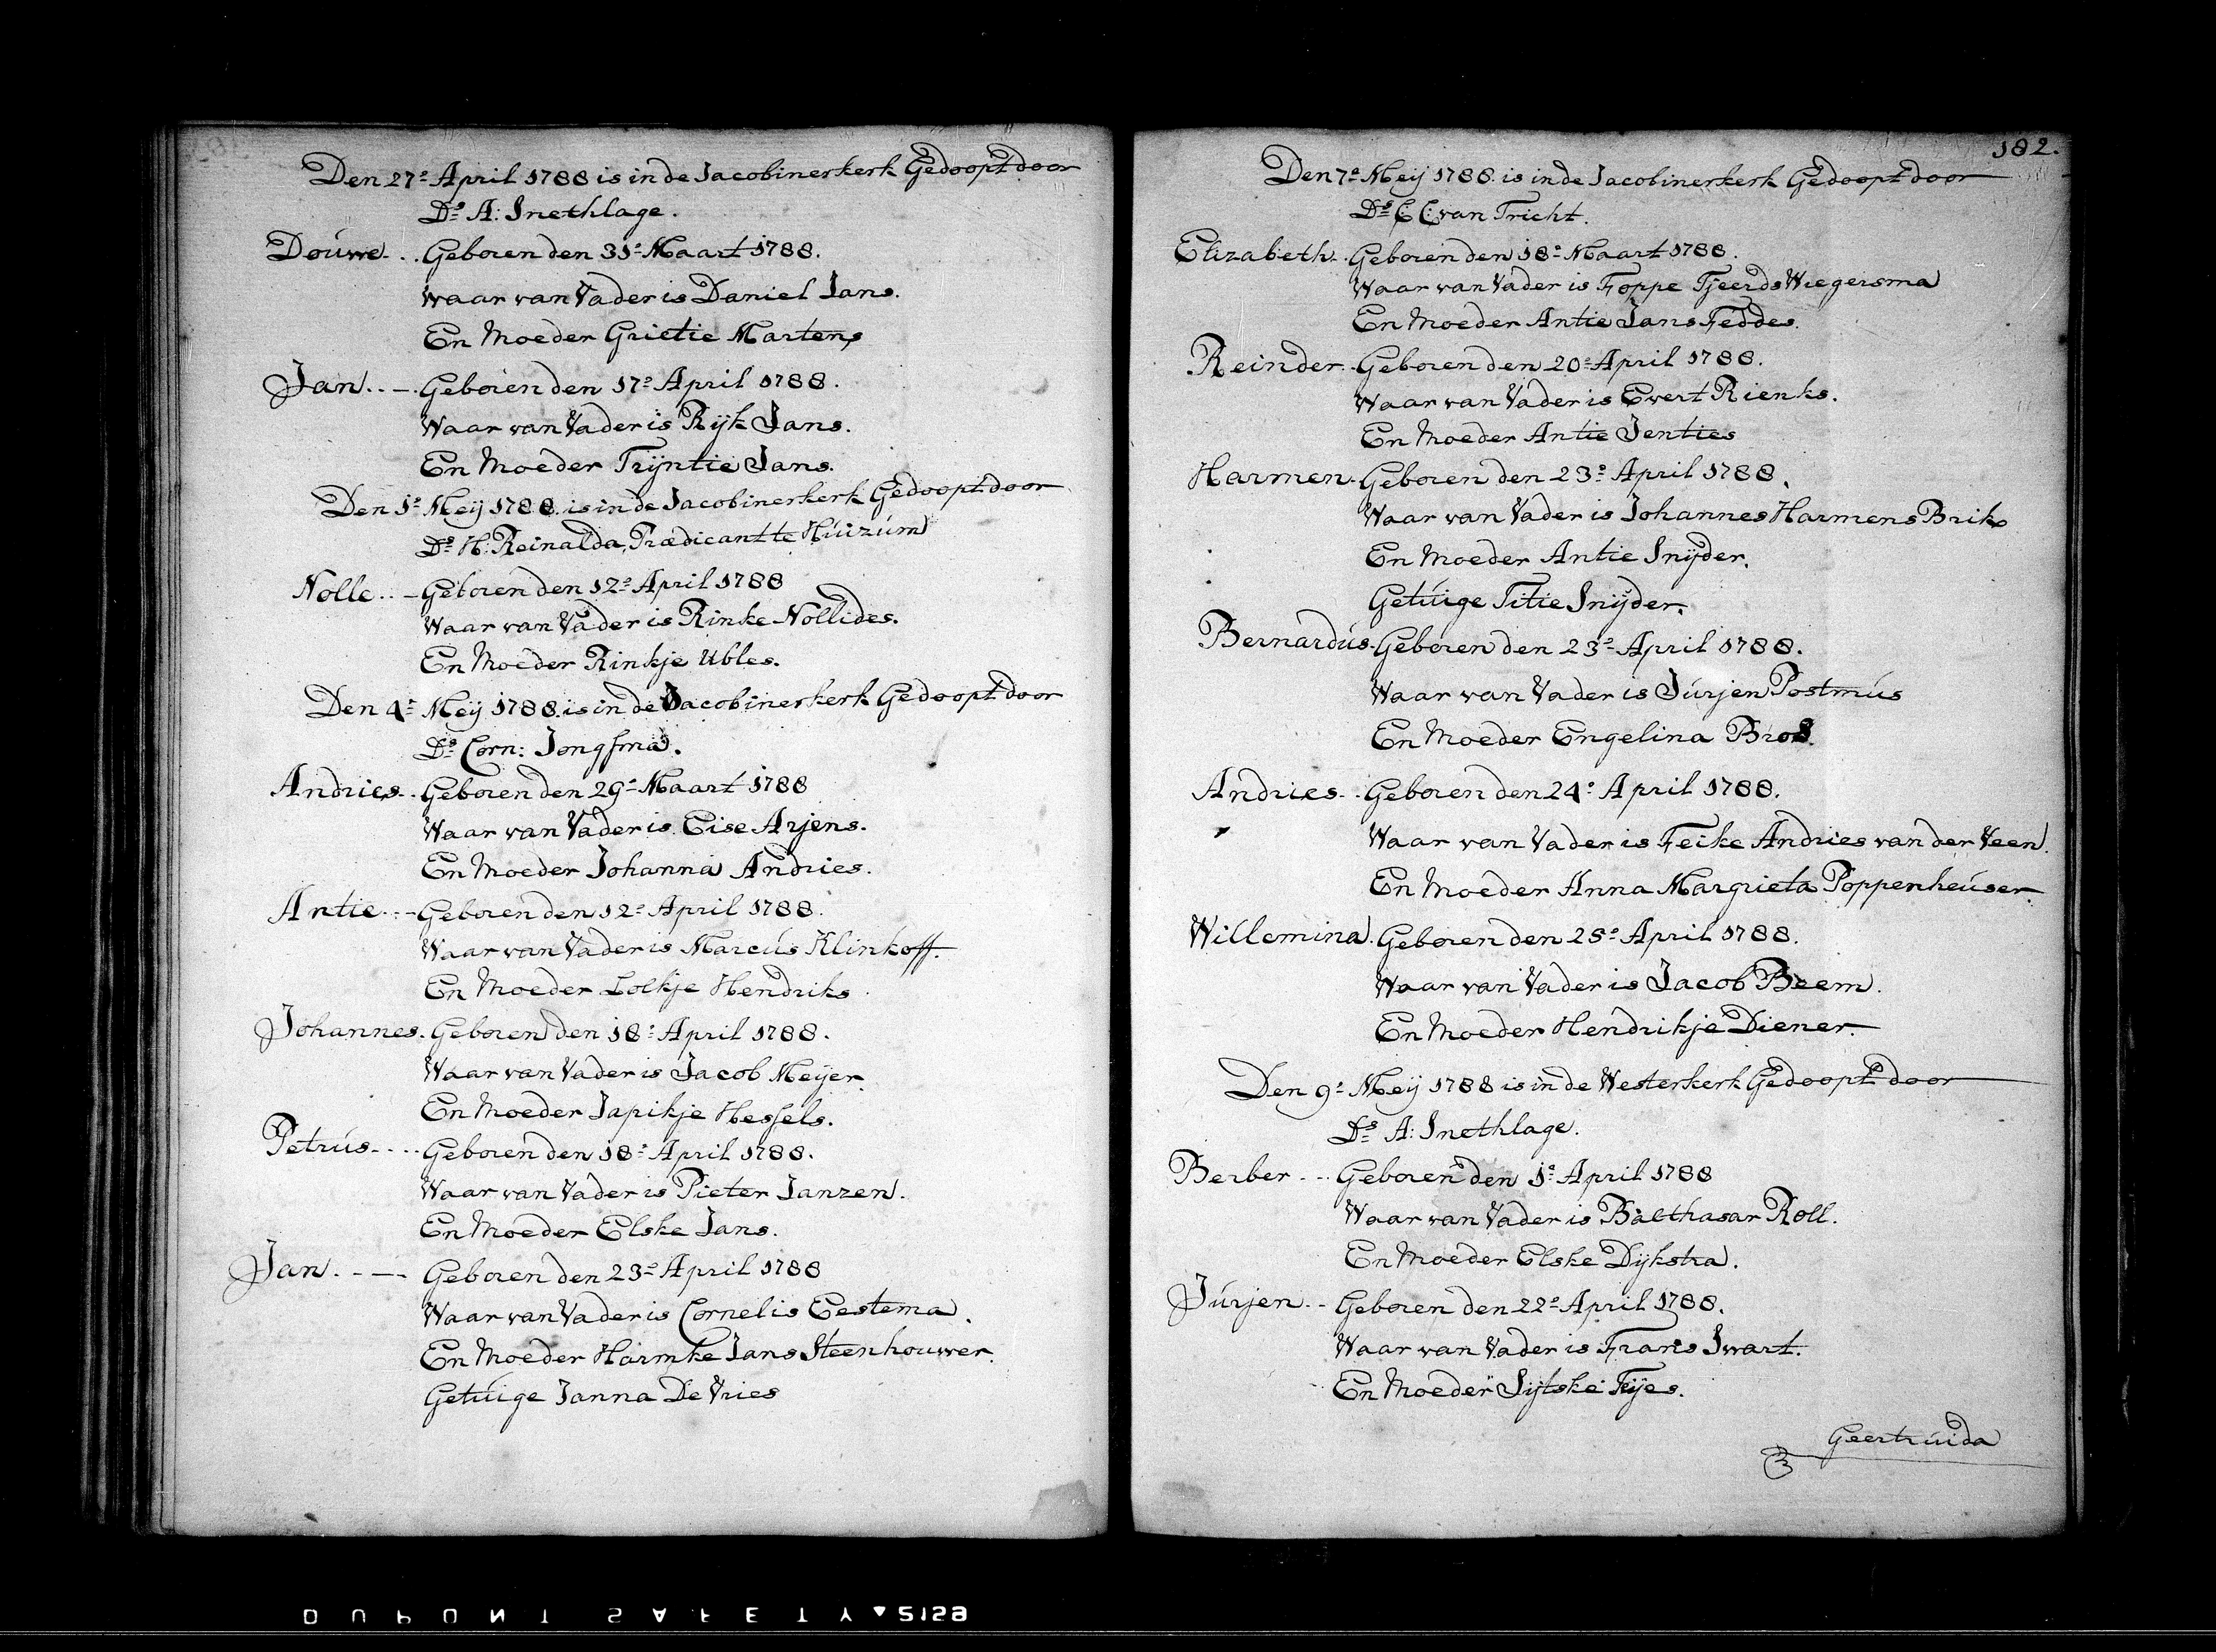 Den 27e April 1788 is in de Jacobinerkerk Gedoopt door
Ds A: Snethlage.
Douwe - . . Geboren den 31e Maart 1788.
Waar van Vader is Daniel Jans.
En Moeder Grietie Martens
Jan . . - . Geboren den 17e April 1788.
Waar van Vader is Ryk Jans.
En Moeder Trijntie Jans.
Den 1e Meij 1788. is in de Jacobinerkerk Gedoopt door
Ds H: Reinalda, Prædicant te Húizúm
Nolle . . - Geboren den 12e April 1788
Waar van Vader is Rinke Nollides.
En Moeder Rinkje Ubles.
Den 4e Meij 1788. is in de Jacobinerkerk Gedoopt door
Ds Corn: Jongsma.
Andries - . Geboren den 29e Maart 1788
Waar van Vader is Eise Arjens.
En Moeder Johanna Andries.
Antie . . - Geboren den 12e April 1788.
Waar van Vader is Marcús Klinkoff.
En Moeder Lolkje Hendriks
Johannes . Geboren den 18e April 1788.
Waar van Vader is Jacob Meijer
En Moeder Japikje Hessels.
Petrús - . . . Geboren den 18e April 1788.
Waar van Vader is Pieter Janzen.
En Moeder Elske Jans.
Jan . - - - Geboren den 23e April 1788
Waar van Vader is Cornelis Eestema.
En Moeder Harmke Jans Steenhouwer.
Getúige Janna De Vries
182.
Den 7e Meij 1788. is in de Jacobinerkerk Gedoopt door
Ds C: C: van Tricht.
Elizabeth - . Geboren den 18e Maart 1788.
Waar van Vader is Foppe Tjeerds Wiegersma
En Moeder Antie Jans Feddes.
Reinder . . Geboren den 20e April 1788.
Waar van Vader is Evert Rienks.
En Moeder Antie Jenties
Harmen . Geboren den 23e April 1788.
Waar van Vader is Johannes Harmens Brik
En Moeder Antie Snijder.
Getúige Titie Snijder.
Bernardús . Geboren den 23e April 1788.
Waar van Vader is Júrjen Postmús
En Moeder Engelina Bros.
Andries - . Geboren den 24e April 1788.
Waar van Vader is Feike Andries van der Veen.
En Moeder Anna Margrieta Poppenheúser.
Willemina . Geboren den 25e April 1788.
Waar van Vader is Jacob Beem.
En Moeder Hendrikje Diener.
Den 9e Meij 1788 is in de Westerkerk Gedoopt door
Ds A: Snethlage.
Berber - - . Geboren den 1e April 1788
Waar van Vader is Balthasar Roll.
En Moeder Elske Dijkstra.
Júrjen - - Geboren den 22e April 1788.
Waar van Vader is Frans Swart.
En Moeder Sijtske Feijes.
Geertrúida
DUPONT SAFETY